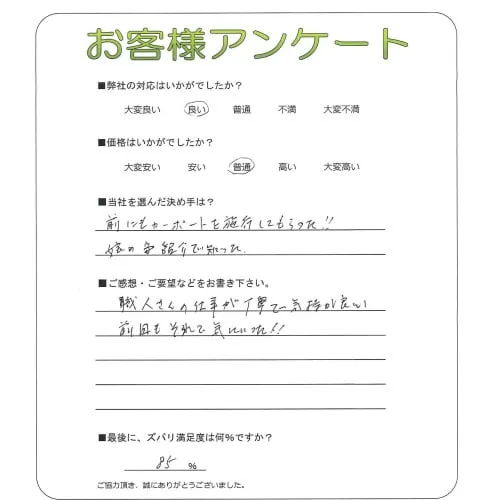 お客様アンケート
■弊社の対応はいかがでしたか？
大変良い 良い 普通 不満 大変不満
■価格はいかがでしたか？
大変安い 安い 普通 高い 大変高い
■当社を選んだ決め手は？
前にもカーポートを施行してもらった!!
紹介で知った
■ご感想・ご要望などをお書き下さい。
職人さんの仕事が丁寧で気持が良い
前回もそれで気にいった!!
■最後に、ズバリ満足度は何％ですか？
85 %
ご協力頂き、誠にありがとうございました。